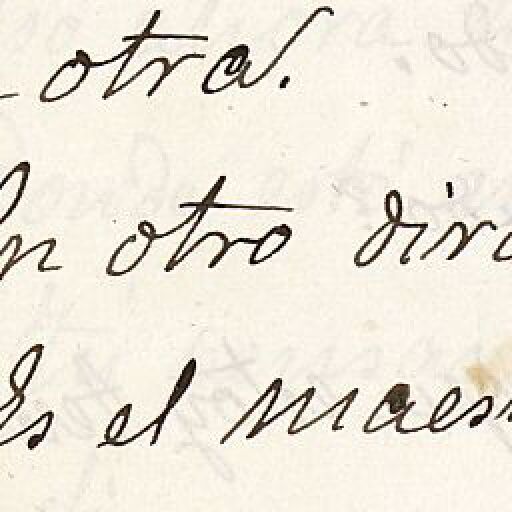 otra.
otro dir
Es el maes